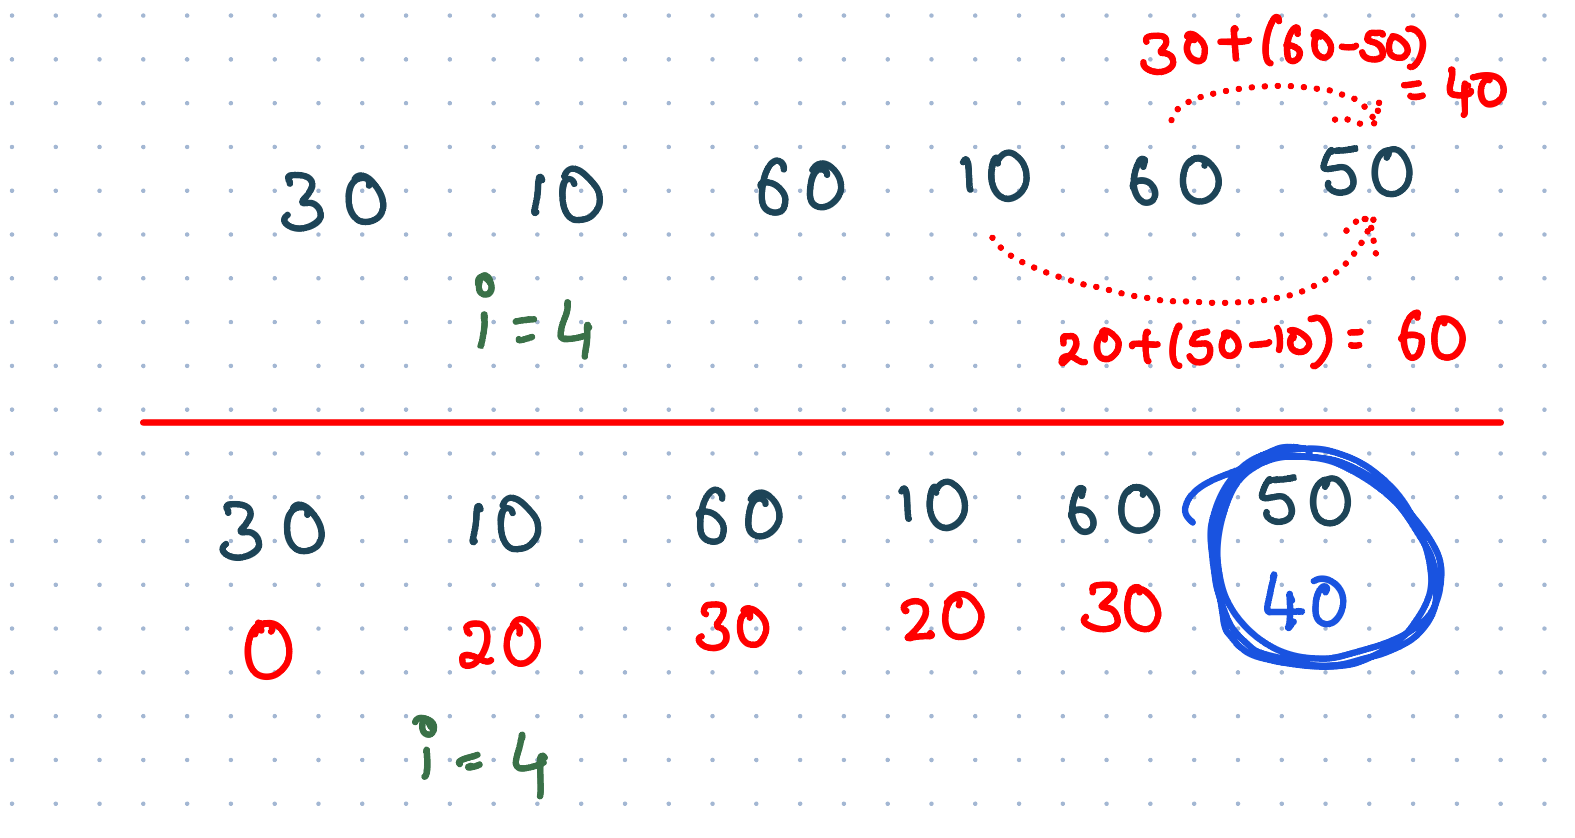 30+(60-50)
= 40
30 10 60 10 60 50
i=4
20+(50-10) = 60
30 10 60 10 60 50
0 20 30 20 30 40
i=4